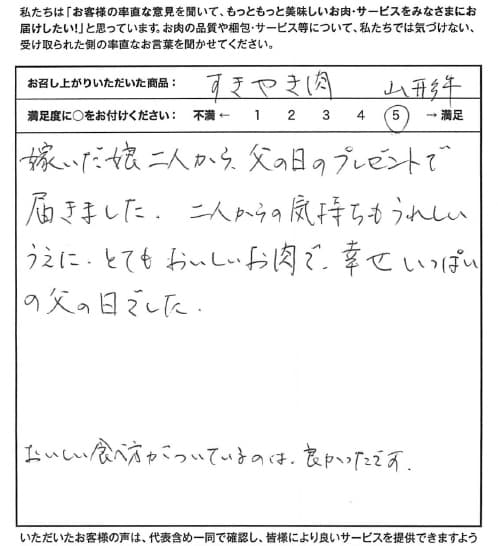 私たちは「お客様の率直な意見を聞いて、もっともっと美味しいお肉・サービスをみなさまにお
届けしたい!」と思っています。お肉の品質や梱包・サービス等について、私たちでは気づけない、
受け取られた側の率直なお言葉を聞かせてください。
お召し上がりいただいた商品： すきやき肉 山形牛
満足度に○をお付けください： 不満 ← 1 2 3 4 5 → 満足
嫁いだ娘二人から、父の日のプレゼントで
届きました. 二人からの気持ちもうれしい
うえに、とてもおいしいお肉で、幸せいっぱい
の父の日でした.
おいしい食べ方がついているのは、良かったです.
いただいたお客様の声は、代表含め一同で確認し、皆様により良いサービスを提供できますよう